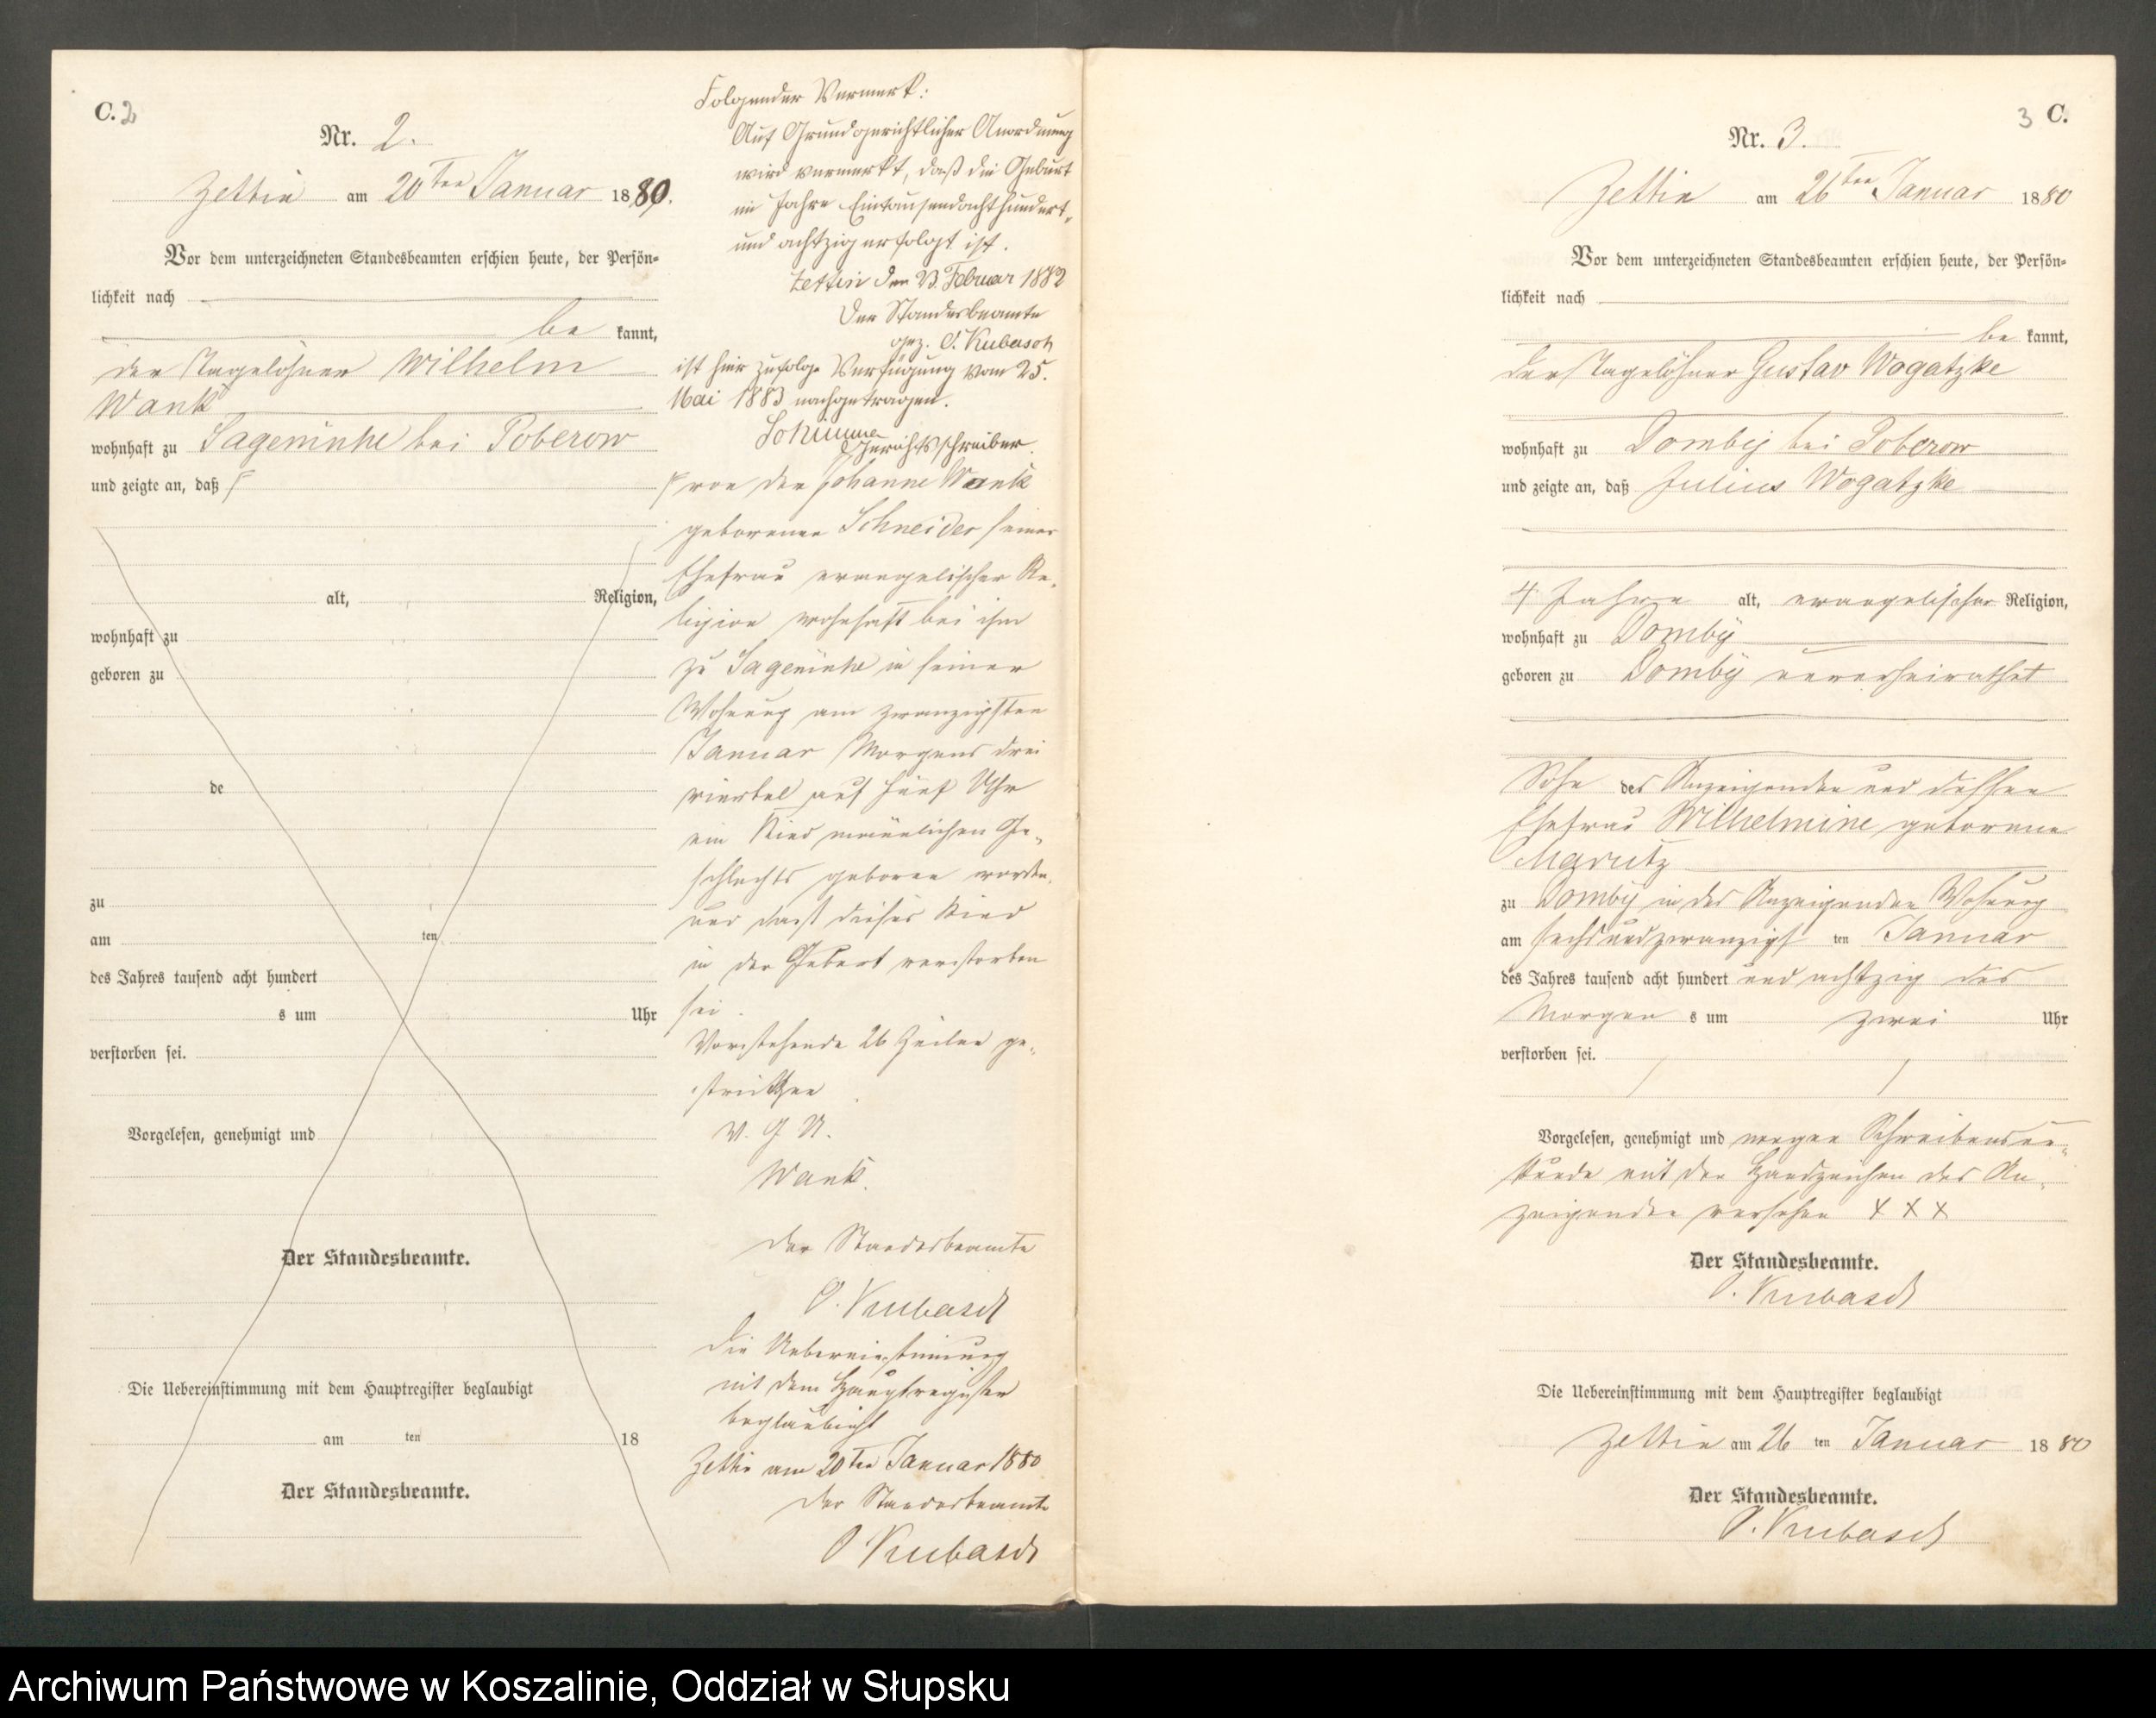 C. 2
Nr. 2.
Zettin am 20ten Januar 1880.
Vor dem unterzeichneten Standesbeamten erschien heute, der Persön-
lichkeit nach
be kannt,
der Tagelöhner Wilhelm
Wank
wohnhaft zu bei Poberow
und zeigte an, daß
alt, Religion,
wohnhaft zu
geboren zu
de
zu
am ten
des Jahres tausend acht hundert
s um Uhr
verstorben sei.
Vorgelesen, genehmigt und
Der Standesbeamte.
Die Uebereinstimmung mit dem Hauptregister beglaubigt
am ten 18
Der Standesbeamte.
Folgender Vermerk:
Auf Grund gerichtlicher Anordnung
wird vermerkt, daß die Geburt
im Jahre Eintausendachthundert-
und achtzig erfolgt ist.
Zettin den 23. Februar 1882
Der Standesbeamte
gez. O. Kubasch
ist hier zufolge Verfügung vom 25.
Mai 1883 nachgetragen.
Gerichtsschreiber.
von der Johanne Wank
geborenen Schneider seiner
Ehefrau evangelischer Re-
ligion wohnhaft bei ihm
zu in seiner
Wohnung am zwanzigsten
Januar Morgens drei
viertel auf fünf Uhr
ein Kind männlichen Ge-
schlechts geboren worden,
und dass dieses Kind
in der Geburt verstorben
sei.
Vorstehende 26 Zeilen ge-
strichen
V. G. U.
Wank.
Der Standesbeamte
O. Kubasch
Die Uebereinstimmung
mit dem Hauptregister
beglaubigt
Zettin am 20ten Januar 1880
Der Standesbeamte
O Kubasch
3 C.
Nr. 3.
Zettin am 26ten Januar 1880
Vor dem unterzeichneten Standesbeamten erschien heute, der Persön-
lichkeit nach
be kannt,
der Tagelöhner Gustav Wogatzke
wohnhaft zu Domby bei Poberow
und zeigte an, daß Julius Wogatzke
4 Jahre alt, evangelischer Religion,
wohnhaft zu Domby
geboren zu Domby unverheirathet
Sohn des Anzeigenden und dessen
Ehefrau Wilhelmine geborene
zu Domby in des Anzeigenden Wohnung
am sechsundzwanzigsten Januar
des Jahres tausend acht hundert und achtzig des
Morgens um zwei Uhr
verstorben sei.
Vorgelesen, genehmigt und wegen Schreibensun-
kunde mit den Handzeichen des An-
zeigenden versehen X X X
Der Standesbeamte.
O. Kubasch
Die Uebereinstimmung mit dem Hauptregister beglaubigt
Zettin am 26 ten Januar 1880
Der Standesbeamte.
O. Kubasch
Archiwum Państwowe w Koszalinie, Oddział w Słupsku